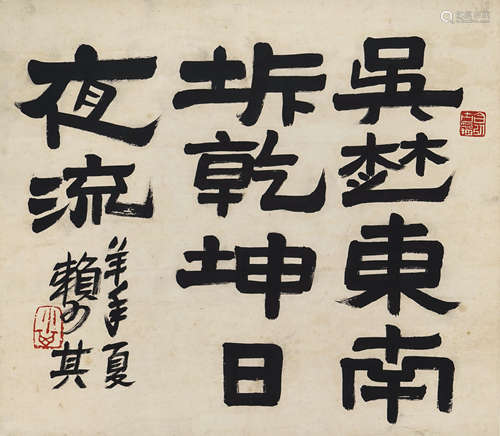 吳楚東南
坼乾坤日
夜流
羊年夏
賴少其